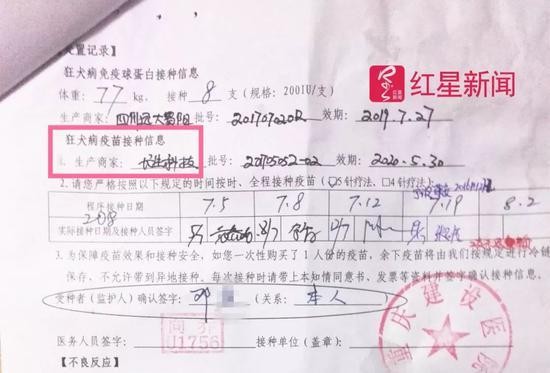 处置记录】
狂犬病免疫球蛋白接种信息
体重：77 kg， 接种 8 支（规格：200IU/支）
红星新闻
生产商家：四川远大蜀阳 批号：20170702R 效期：2019.7.27
狂犬病疫苗接种信息
1. 生产商家： 长生科技 批号：20170502-02 效期：2020.5.30
2.请您严格按照以下规定的时间按时、全程接种疫苗（☑5针疗法、□4针疗法）
程序接种日期 7.5 7.8 7.12 7.19 8.2
2018
实际接种日期及接种人员签字
3.为保障疫苗效果和接种安全，如您一次性购买了1人份的疫苗，余下疫苗将由我们按规定进行冷链
保存、不允许带到异地接种。每次接种时请带上本知情同意书、发票等资料并签字确认接种信息。
受种者（监护人）确认签字：邓 （关系： 本人 ）
重庆建设医院
U1756
医务人员签字： 接种单位（盖章）：
【不良反应】